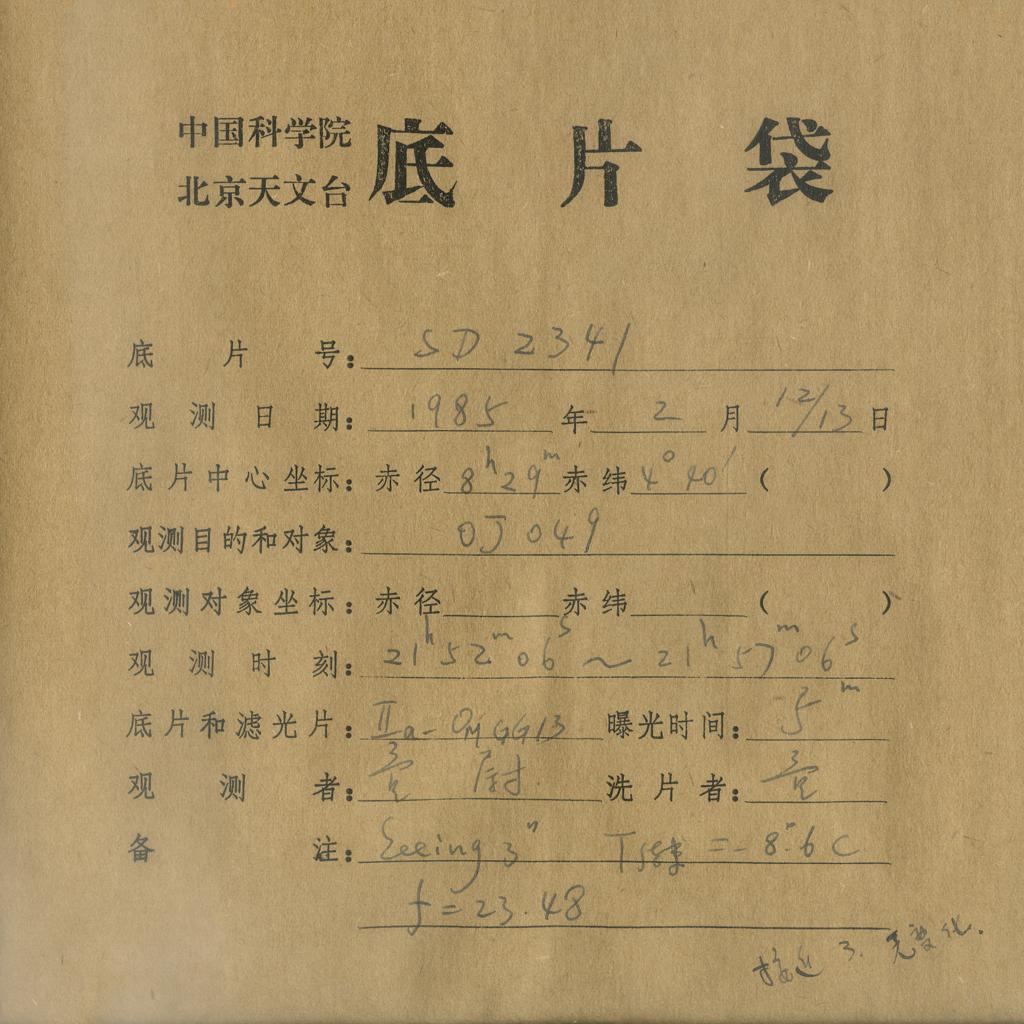 中国科学院
北京天文台
底片袋
底片号：SD 2341
观测日期：1985年2月12/13日
底片中心坐标：赤径8h29m赤纬4°40′（ ）
观测目的和对象：OJ 049
观测对象坐标：赤径 赤纬 （ ）
观测时刻：21h52m06s～21h57m06s
底片和滤光片：IIa-O GG13 曝光时间：5m
观测者： 尉 洗片者：
备注：Seeing 3″ T = -8.°6 C
f = 23.48
无变化.